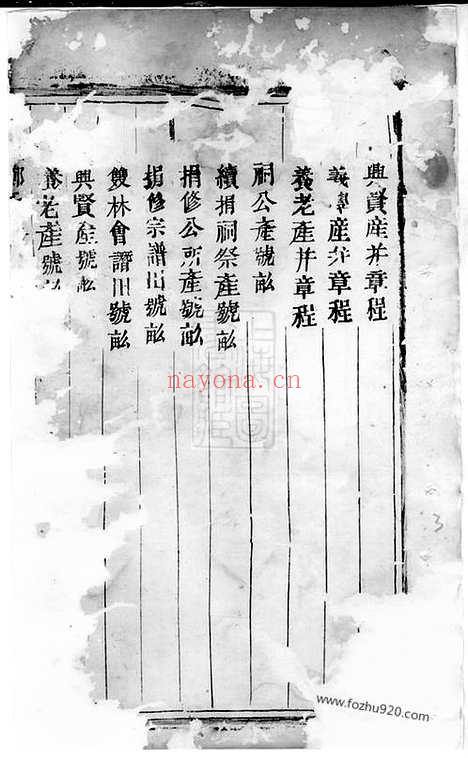 興賢産并章程
義學産并章程
養老產并章程
祠公產號畝
續捐祠祭產號畝
捐修公所產號畝
捐修宗譜田號畝
雙林會譜田號畝
興賢產號畝
養老產號
nayona.cn
www.fozhu920.com